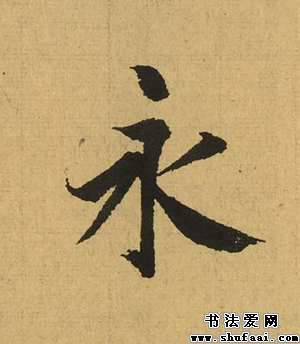 永
书法爱网
www.shufaai.com